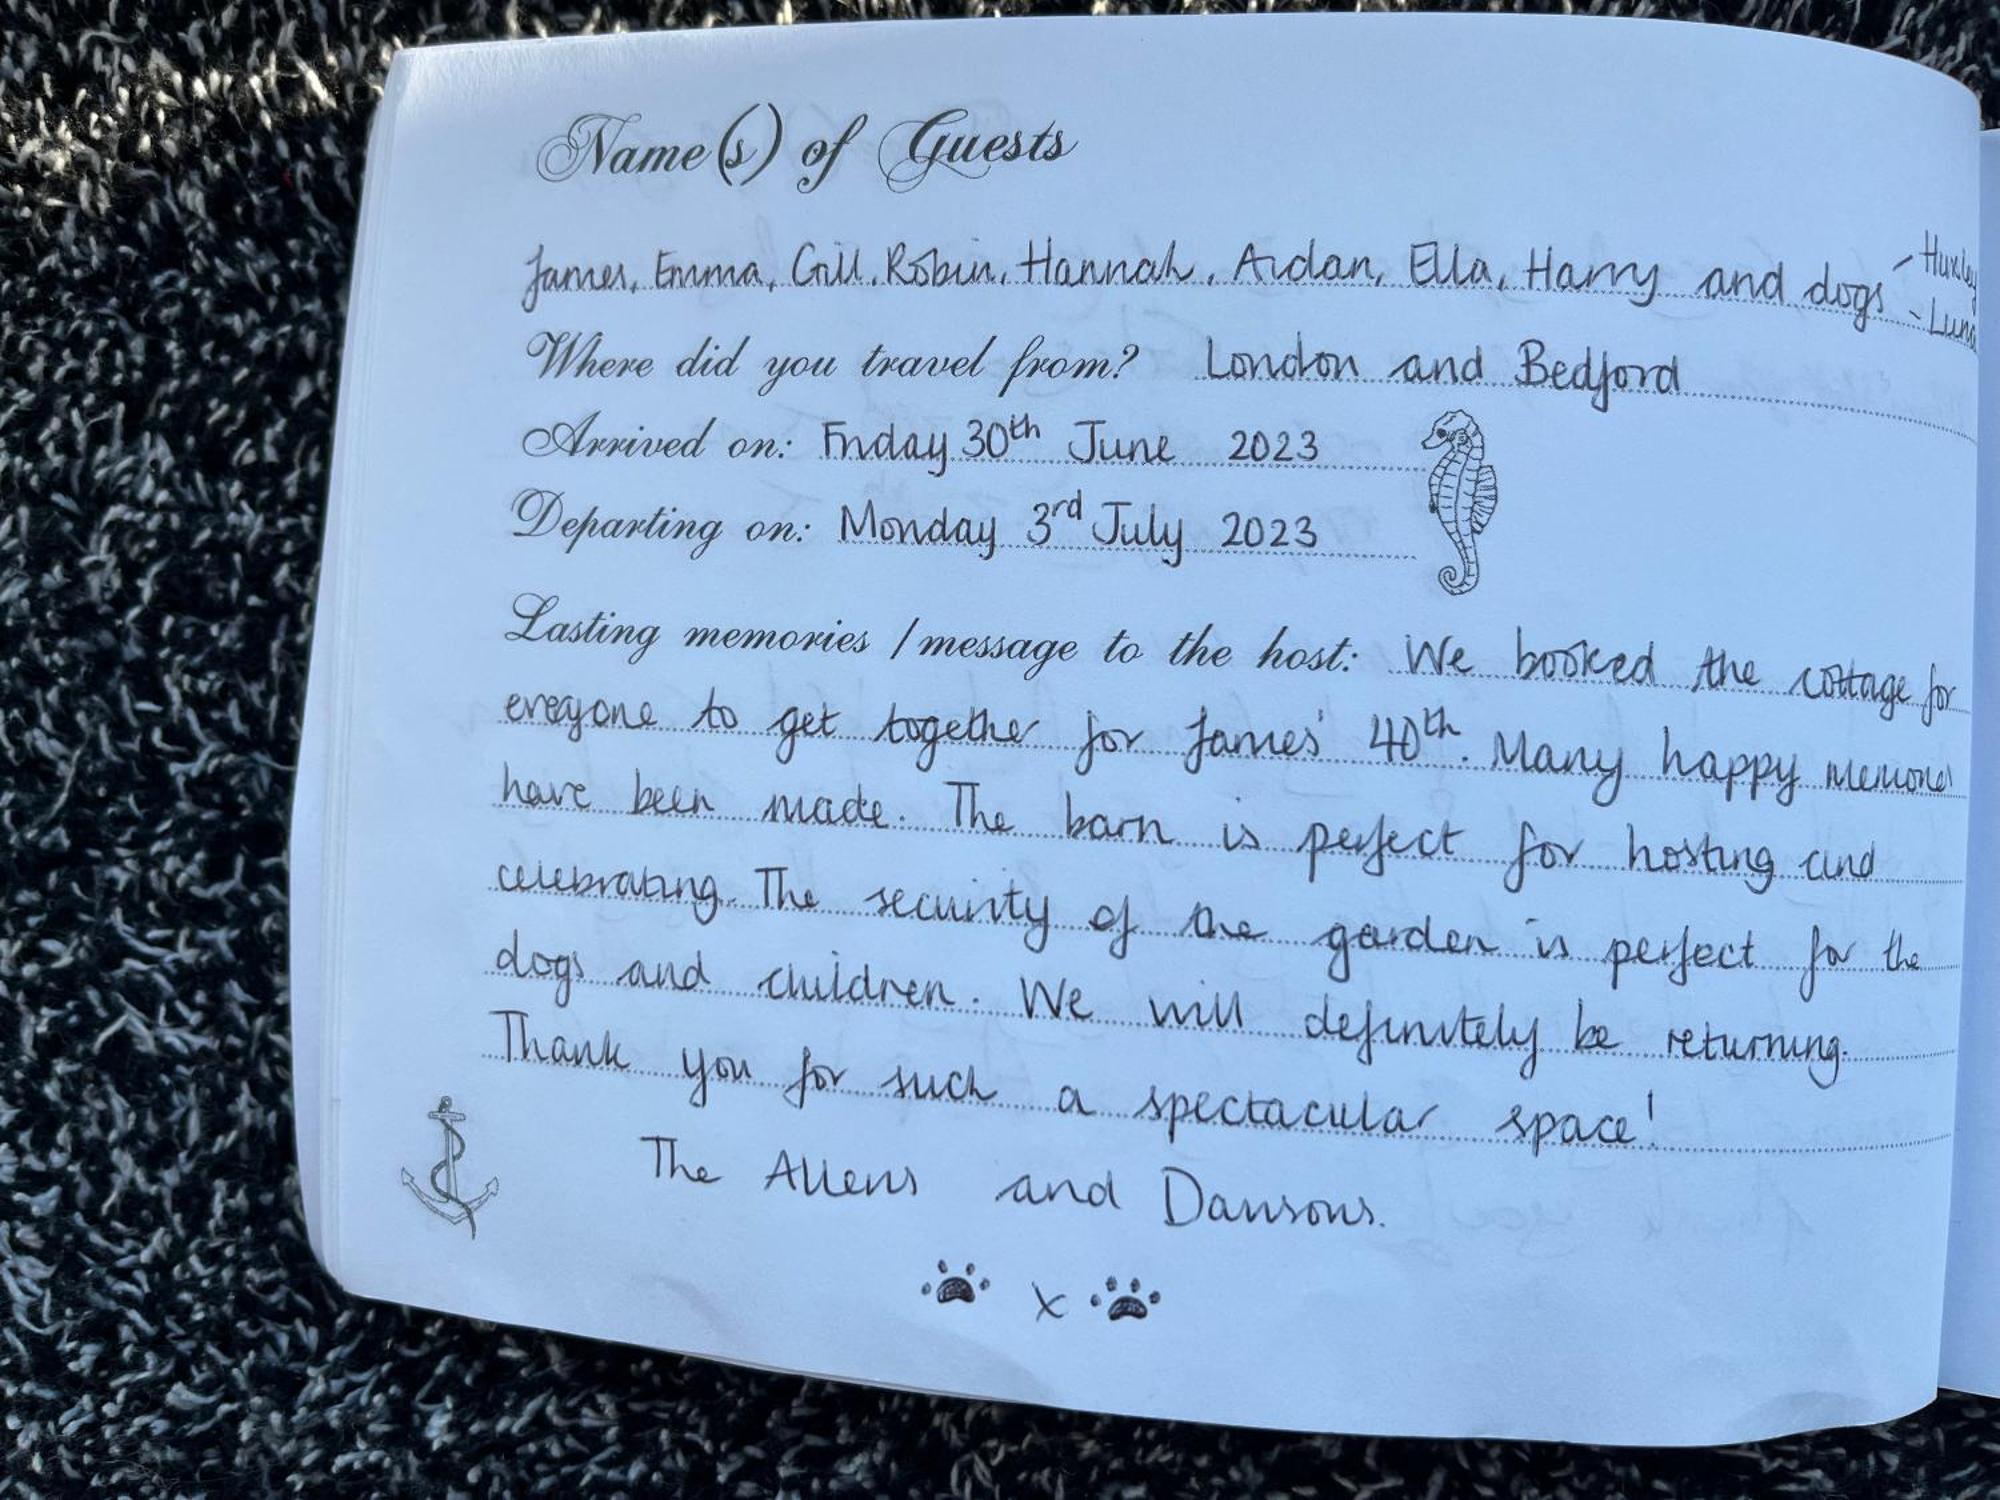 Name(s) of Guests
James, Emma, Gill, Robin, Hannah, Aidan, Ella, Harry and dogs - Huxley
- Luna
Where did you travel from? London and Bedford
Arrived on: Friday 30th June 2023
Departing on: Monday 3rd July 2023
Lasting memories / message to the host: We booked the cottage for
everyone to get together for James' 40th. Many happy memories
have been made. The barn is perfect for hosting and
celebrating. The security of the garden is perfect for the
dogs and children. We will definitely be returning.
Thank you for such a spectacular space!
The Allens and Dawsons.
x